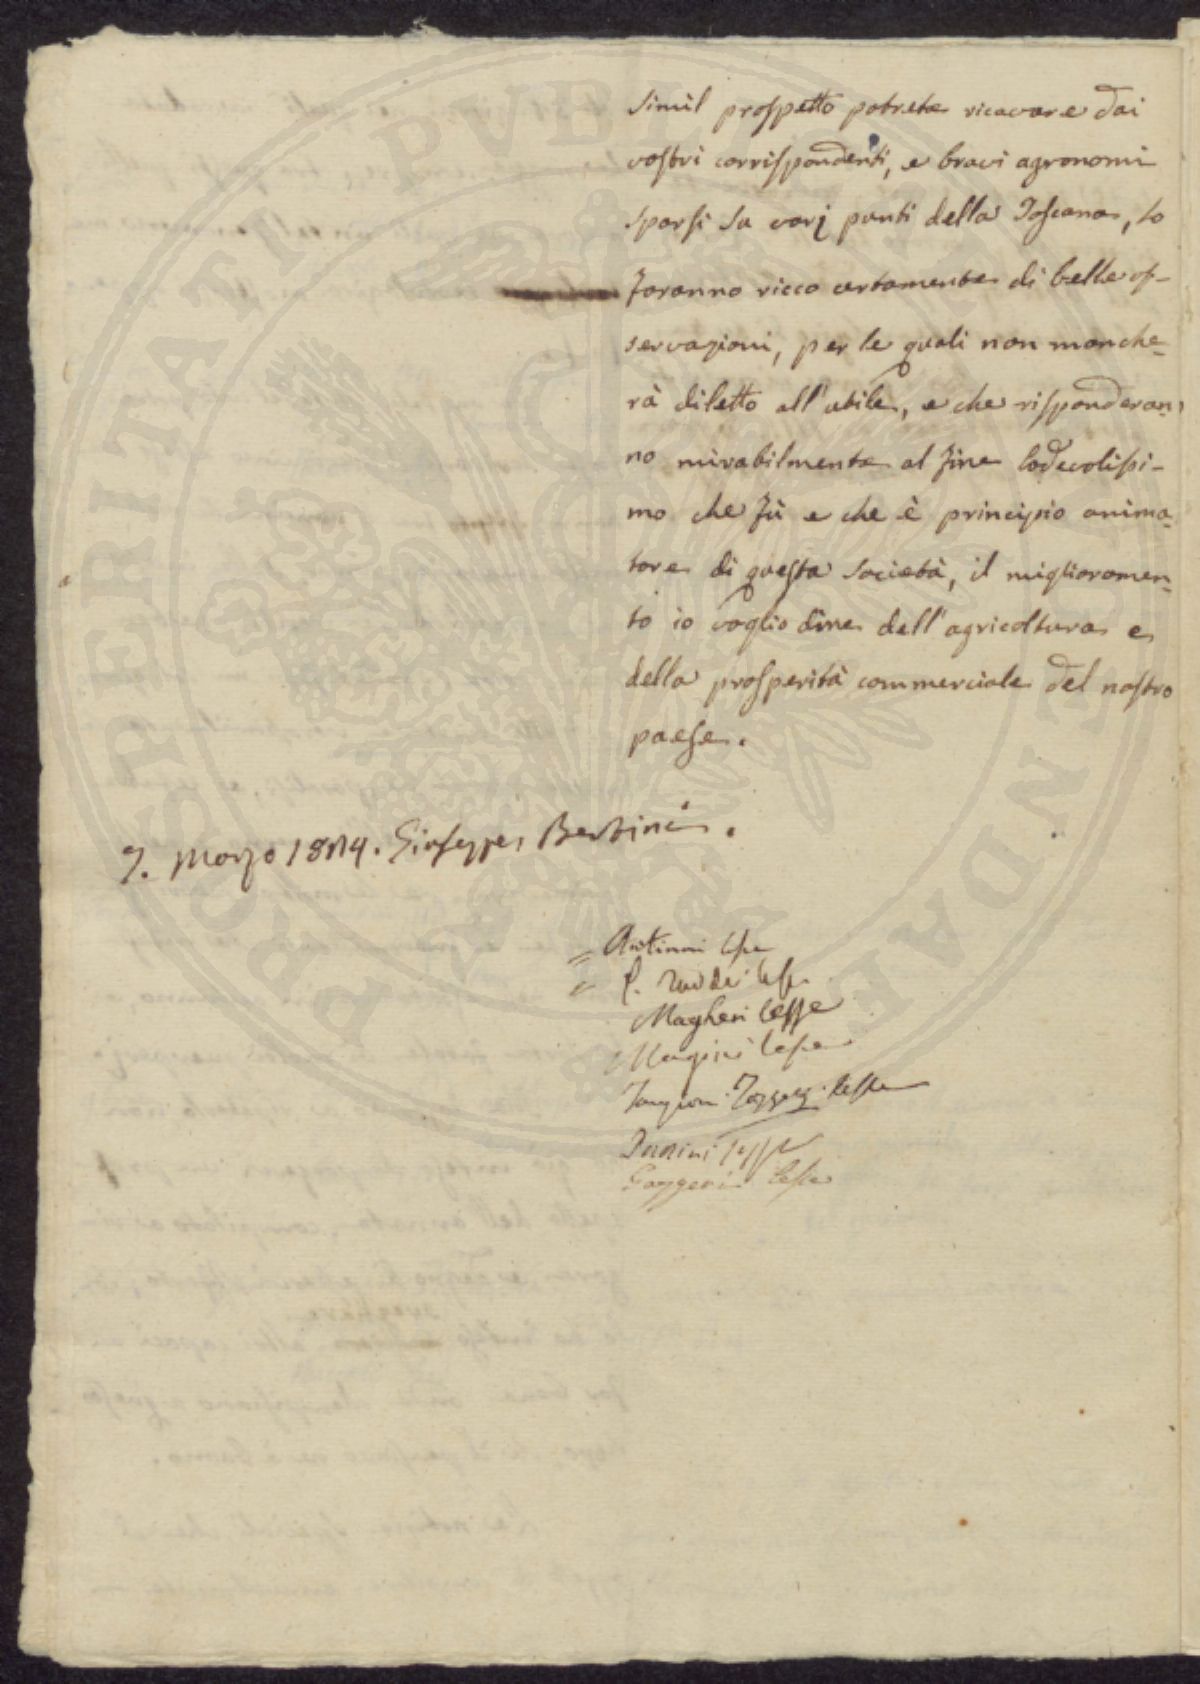 simil prospetto potrete ricavare dai
vostri corrispondenti, e bravi agronomi
sparsi su varj punti della Toscana, lo
faranno ricco certamente di belle os-
servazioni, per le quali non manche-
rà diletto all'utile, e che risponderan-
no mirabilmente al fine lodevolissi-
mo che fù e che è principio anima-
tore di questa società, il miglioramen-
to io voglio dire dell'agricoltura e
della prosperità commerciale del nostro
paese.
7. Marzo 1814. Giuseppe Bertini.
= Attinni lesse
= P. lesse
Magheri lesse
lesse
Targioni Tozzetti lesse
lesse
Gazzeri lesse
PROSPERITATI PVBLICAE AVGENDAE